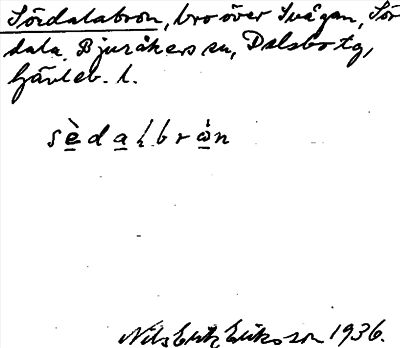 Sördalabron, bro över Svågan, Sör
dala, Bjuråkers sn, Delsbo tg,
Gävleb. l.
sèdalbrȯn
Nils Erik Eriksson 1936.